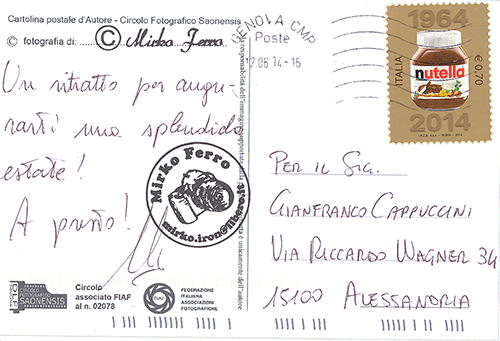 Cartolina postale d'Autore - Circolo Fotografico Saonensis
© fotografia di: © Mirko Ferro
Un ritratto per augu-
rarti una splendida
estate!
A presto!
Mirko Ferro
mirko.iron@libero.it
CIRCOLO
FOTOGRAFICO
SAONENSIS
Circolo
associato FIAF
al n. 02078
FIAF
FEDERAZIONE
ITALIANA
ASSOCIAZIONI
FOTOGRAFICHE
la responsabilità dell'immagine
e unicamente dell'autore
GENOVA CMP
Poste
12.06.14-16
1964
ITALIA
€ 0,70
nutella
2014
PER IL SIG.
GIANFRANCO CAPPUCCINI
VIA RICCARDO WAGNER 34
15100 ALESSANDRIA